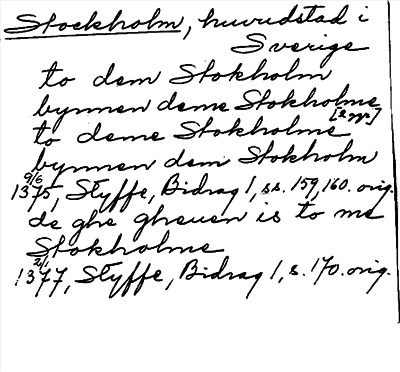 Stockholm, huvudstad i
Sverige
to dem Stokholm
bynnen deme Stokholme
[2 ggr]
to deme Stokholme
bynnen dem Stokholm
9/6
1375, Styffe, Bidrag 1, ss. 159, 160. orig.
de ghe gheuen is to me
Stokholme
2/1
1377, Styffe, Bidrag 1, s. 170. orig.